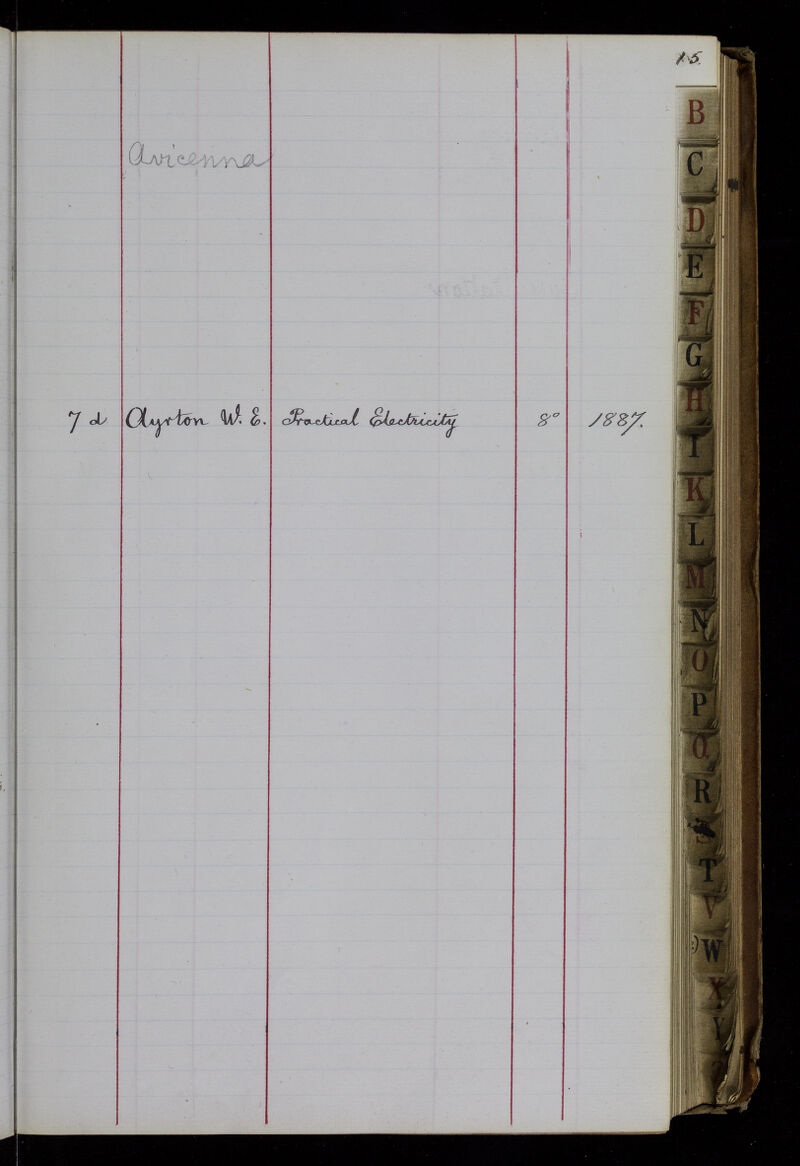 15.
Avicenna
7 d Ayrton W. E. Practical Electricity 8° 1887.
B
C
D
E
F
G
H
I
K
L
M
N
O
P
Q
R
S
T
V
W
X
Y